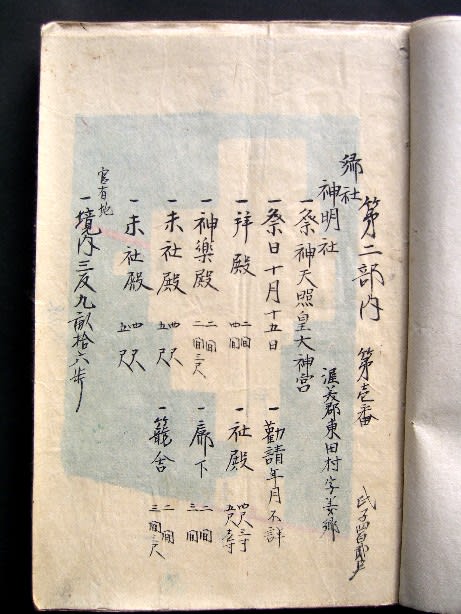 第二部内 第壱番
郷社
神明社 渥美郡東田村字美郷 氏子四百貳戸
一祭神天照皇大神宮
一祭日十月十五日 一勧請年月不詳
一拝殿 二間 四間 一社殿 四尺三寸 五尺壱寸
一神楽殿 二間 二間三尺 一廊下 二間 三間
一末社殿 四尺 五尺 一籠舎 二間 三間三尺
一末社殿 四尺 五尺
官有地
一境内三反九畝拾六歩